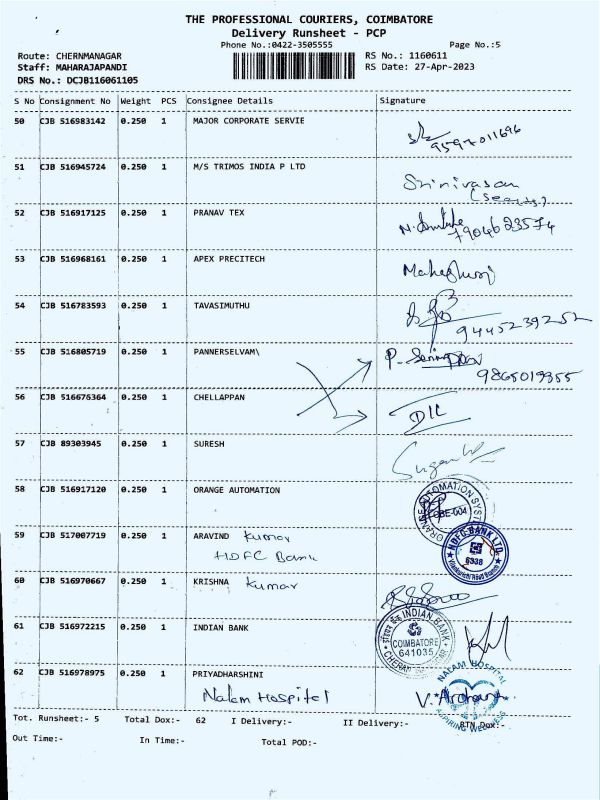 THE PROFESSIONAL COURIERS, COIMBATORE
Delivery Runsheet - PCP
Phone No.:0422-3505555 Page No.:5
Route: CHERNMANAGAR RS No.: 1160611
Staff: MAHARAJAPANDI RS Date: 27-Apr-2023
DRS No.: DCJB116061105
S No Consignment No Weight PCS Consignee Details Signature
50 CJB 516983142 0.250 1 MAJOR CORPORATE SERVIE
9597011696
51 CJB 516945724 0.250 1 M/S TRIMOS INDIA P LTD
Srinivasan
52 CJB 516917125 0.250 1 PRANAV TEX
7904623574
53 CJB 516968161 0.250 1 APEX PRECITECH
54 CJB 516783593 0.250 1 TAVASIMUTHU
9445239252
55 CJB 516805719 0.250 1 PANNERSELVAM\
P.
9865019355
56 CJB 516675364 0.250 1 CHELLAPPAN
57 CJB 89303945 0.250 1 SURESH
58 CJB 516917120 0.250 1 ORANGE AUTOMATION
ORANGE AUTOMATION SYSTEM
CBE-004
59 CJB 517007719 0.250 1 ARAVIND Kumar
HDFC Bank
HDFC BANK LTD.
60 CJB 516970667 0.250 1 KRISHNA Kumar
61 CJB 516972215 0.250 1 INDIAN BANK
INDIAN BANK
COIMBATORE
641035
62 CJB 516978975 0.250 1 PRIYADHARSHINI
Nalam Hospital
NALAM HOSPITAL
ASPIRING WELLNESS
Tot. Runsheet:- 5 Total Dox:- 62 I Delivery:- II Delivery:- RTN Dox:-
Out Time:- In Time:- Total POD:-